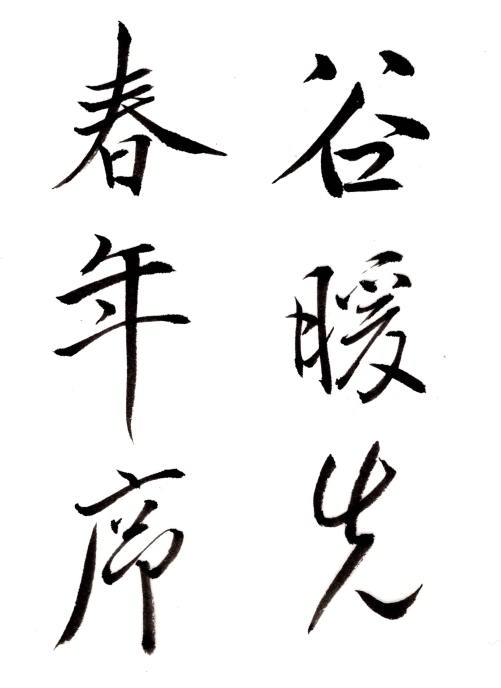 谷暖先
春年序